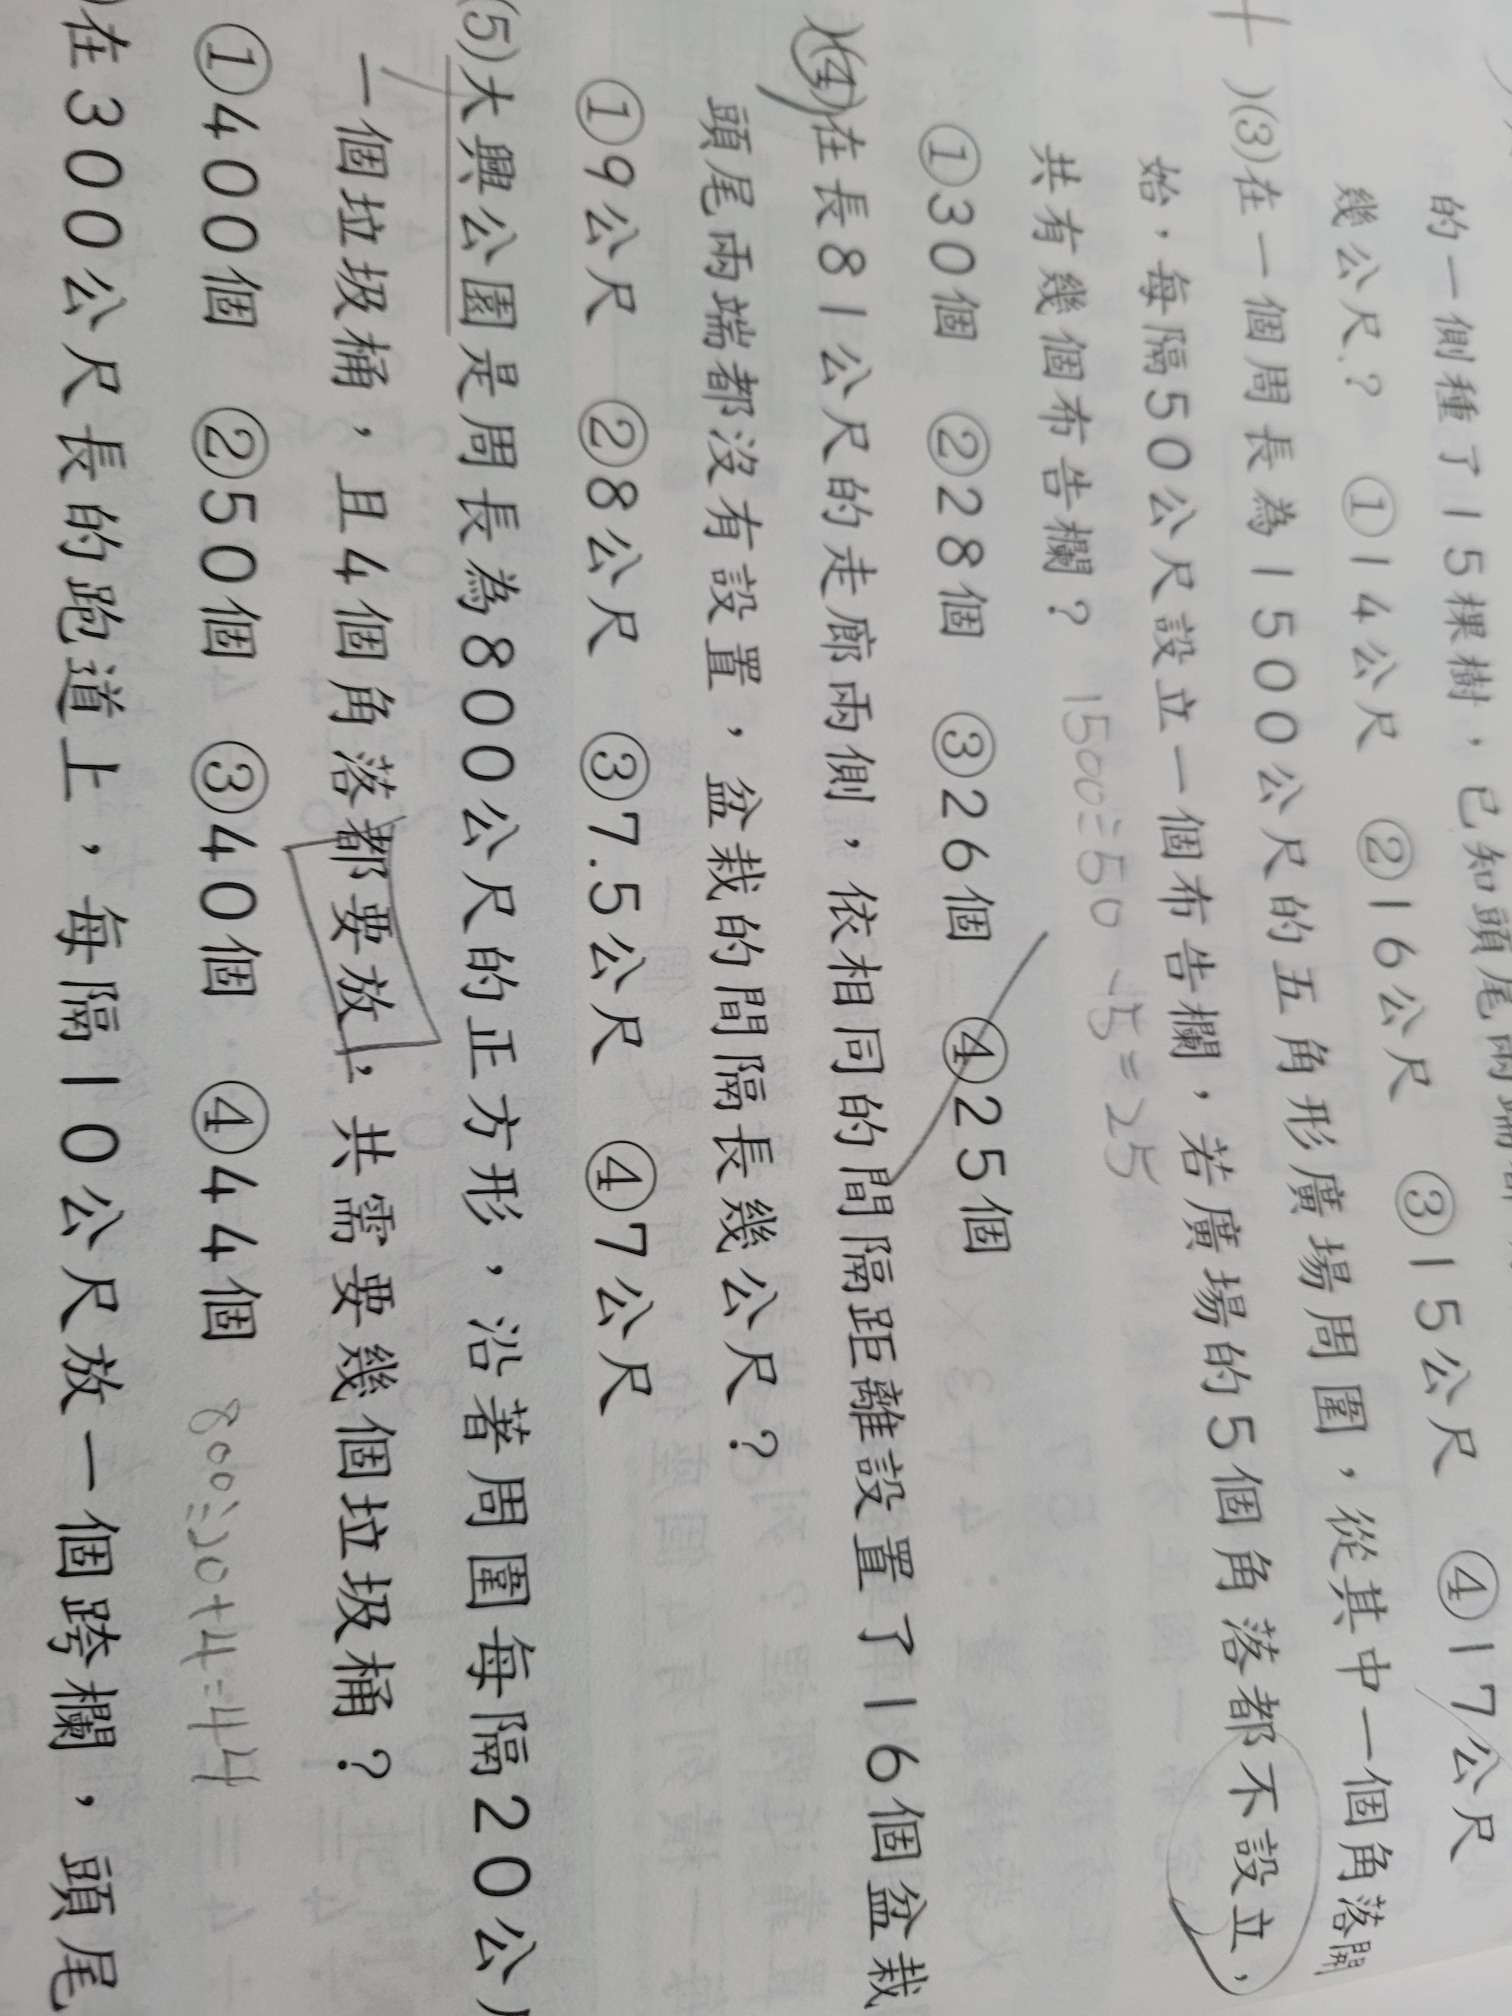 的一側種了15棵樹，已知頭尾兩端都
幾公尺？ ①14公尺 ②16公尺 ③15公尺 ④17公尺
)(3)在一個周長為1500公尺的五角形廣場周圍，從其中一個角落開
始，每隔50公尺設立一個布告欄，若廣場的5個角落都不設立，
共有幾個布告欄？ 1500÷50-5=25
①30個 ②28個 ③26個 ④25個
)(4)在長81公尺的走廊兩側，依相同的間隔距離設置了16個盆栽
頭尾兩端都沒有設置，盆栽的間隔長幾公尺？
①9公尺 ②8公尺 ③7.5公尺 ④7公尺
(5)大興公園是周長為800公尺的正方形，沿著周圍每隔20公
一個垃圾桶，且4個角落都要放，共需要幾個垃圾桶？
①400個 ②50個 ③40個 ④44個 800÷20+4=44
)在300公尺長的跑道上，每隔10公尺放一個跨欄，頭尾